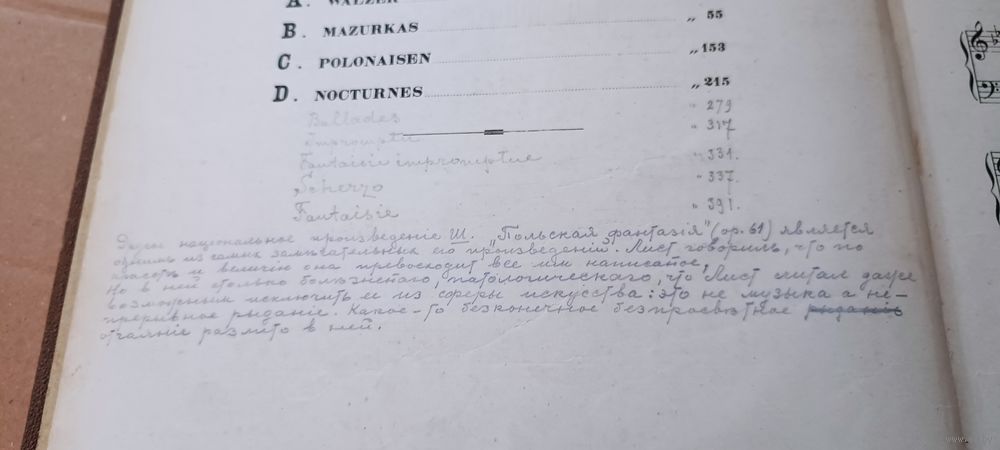 A. WALZER
B. MAZURKAS „ 55
C. POLONAISEN „ 153
D. NOCTURNES „ 215
Ballades " 279
Impromptu " 317
Fantaisie impromptue " 331.
Scherzo " 337.
Fantaisie " 391.
Другое национальное произведеніе Ш. „Польская фантазія" (ор. 61) является
однимъ из самых замѣчательных его произведеній. Лист говорит, что по
красотѣ и величію она превосходит все им написанное,
но в ней столько болѣзненаго, патологическаго, что Лист считал даже
возможным исключить ее из сферы искусства: это не музыка а не-
прерывное рыданіе. Какое-то безконечное безпросвѣтное рыданіе
отчаяніе разлито в ней.